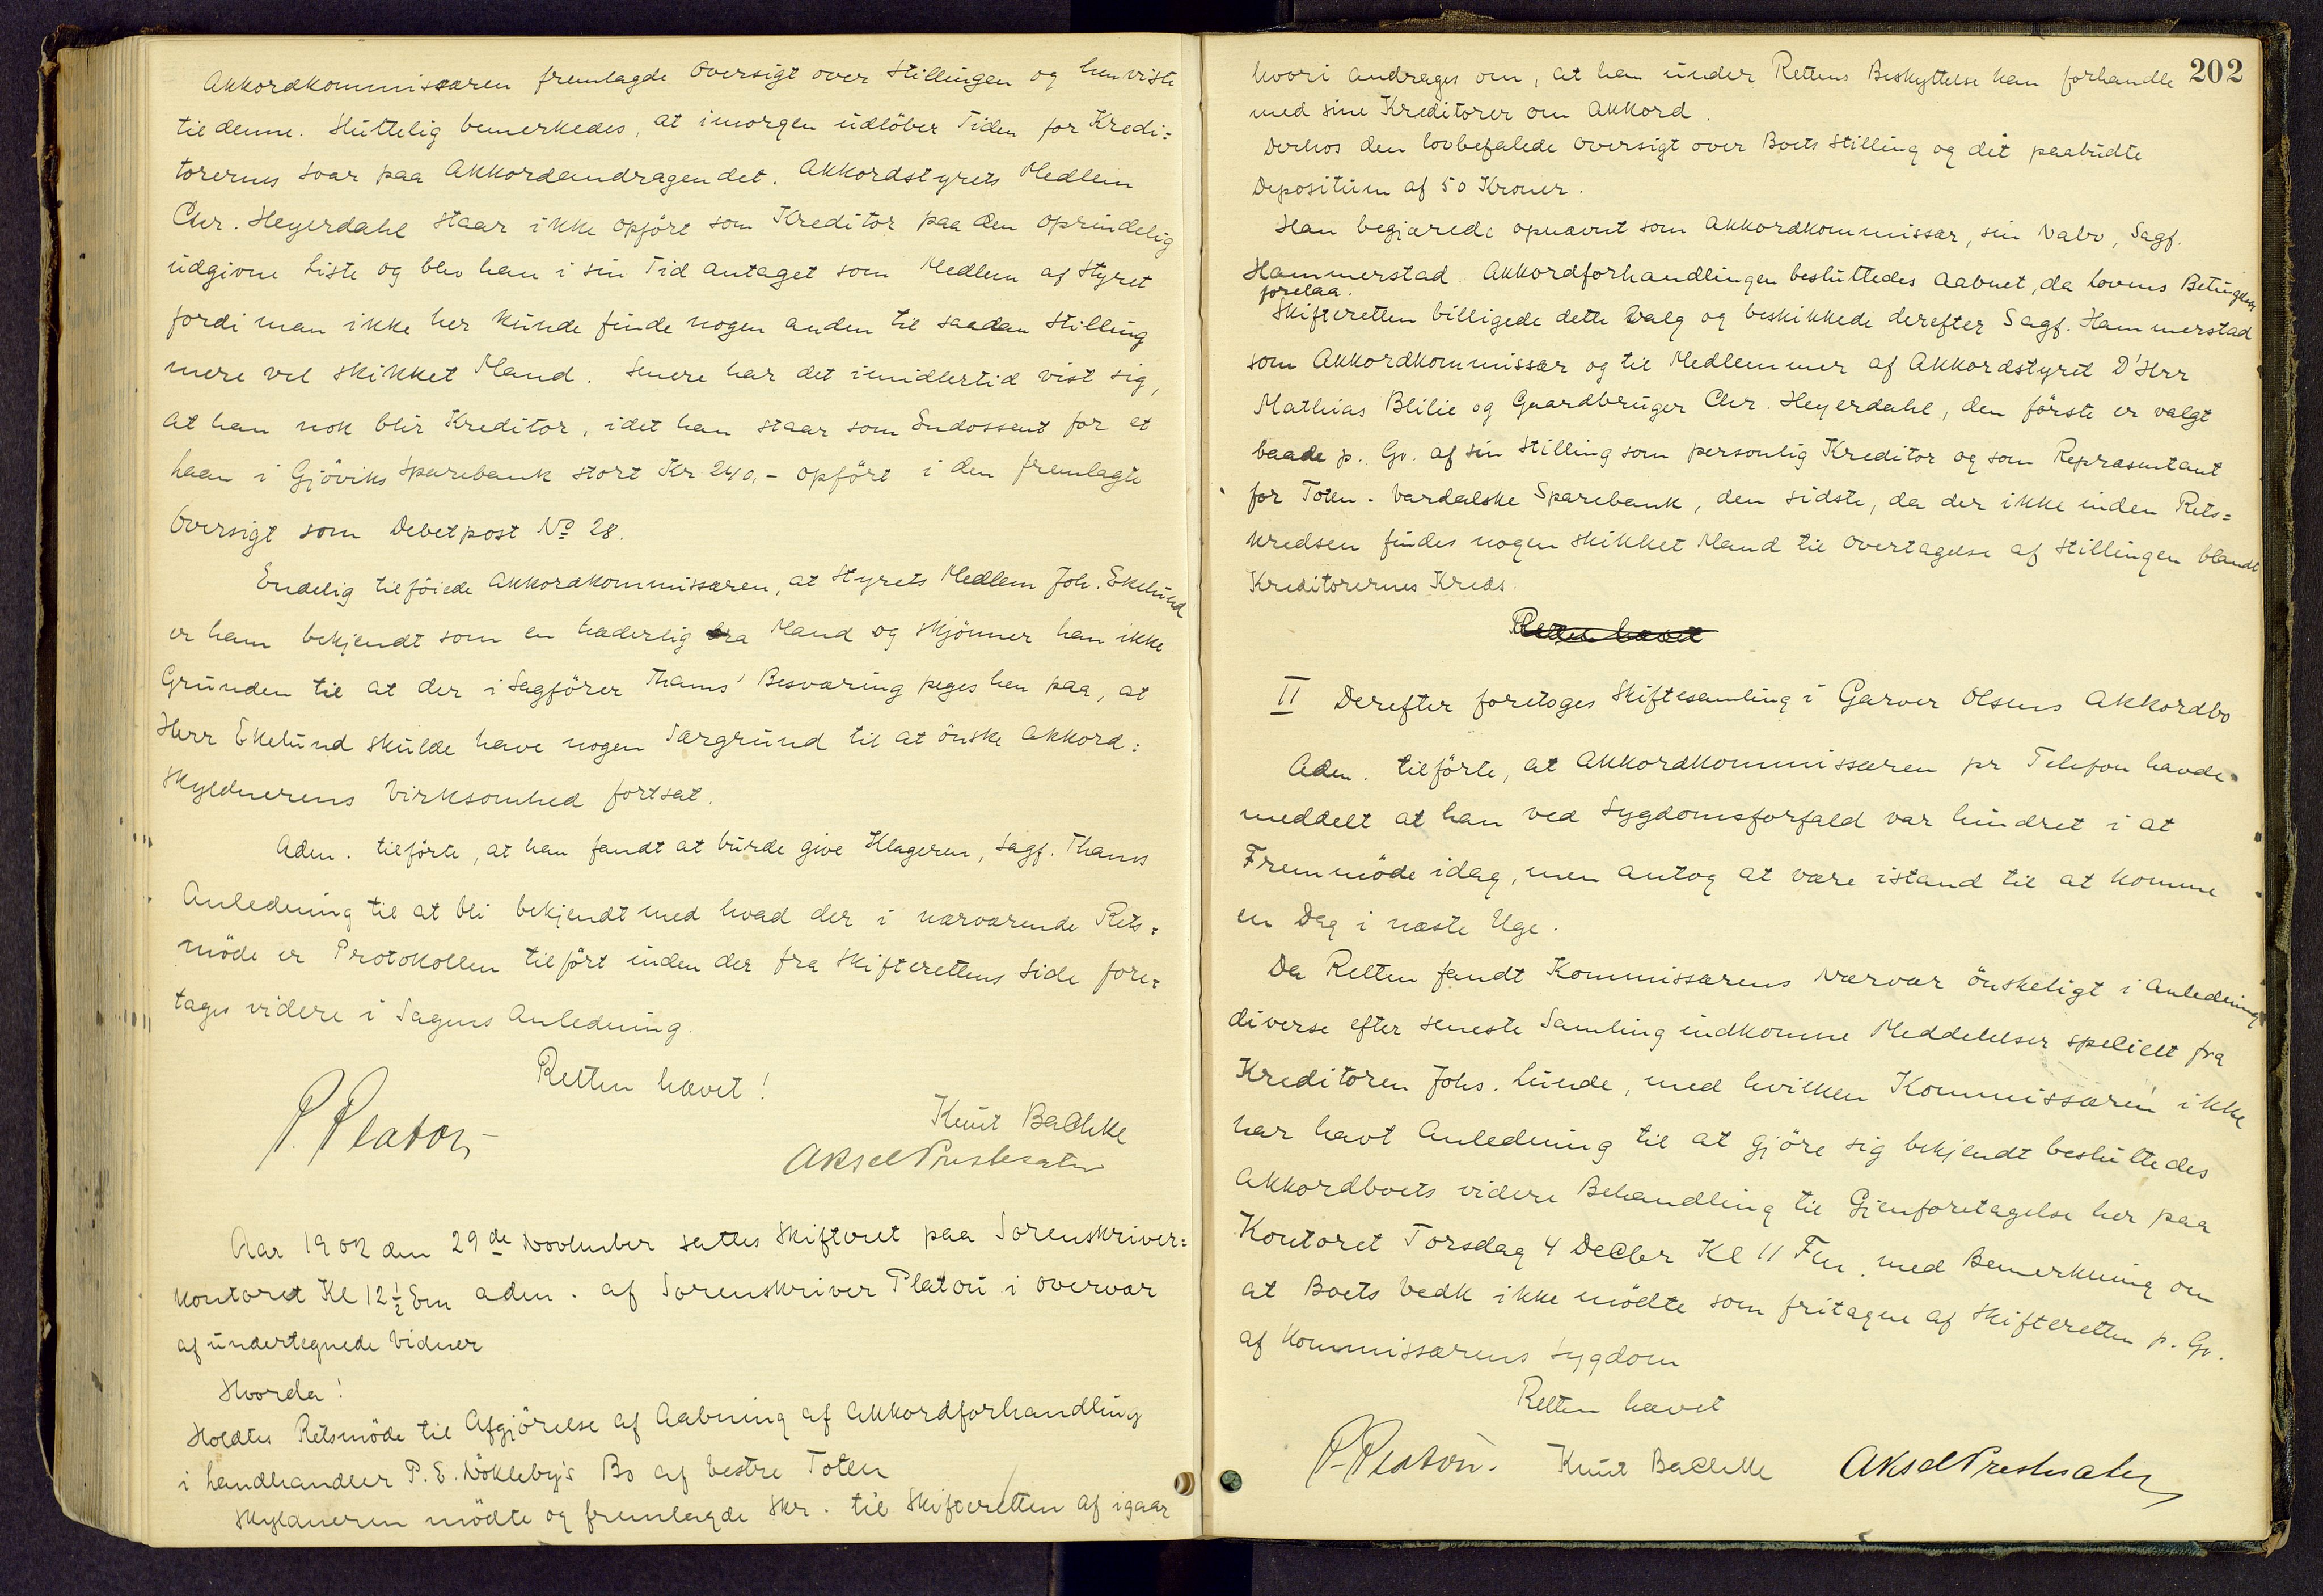 Akkordkommissæren fremlagde Oversigt over Stillingen og henviste
til denne. Sluttelig bemerkedes, at imorgen udlöber Tiden for Kredi=
torernes svar paa Akkordandragendet. Akkordstyrets Medlem
Chr. Heyerdahl staar ikke opfört som Kreditor paa den oprindelig
udgivne Liste og blev han i sin Tid antaget som Medlem af Styret
fordi man ikke her kunde finde nogen anden til saadan Stilling
mere vel skikket Mand. Senere har det imidlertid vist sig,
at han nok blir Kreditor, idet han staar som Endossent for et
Laan i Gjöviks Sparebank stort Kr 240,- opfört i den fremlagte
Oversigt som Debetpost No 28.
Endelig tilföiede Akkordkommissæren, at Styrets Medlem Joh. Ekelund
er ham bekjendt som en hæderlig bra Mand og skjönner han ikke
Grunden til at der i Sagförer Thams' Besværing peges hen paa, at
Herr Ekelund skulde have nogen Særgrund til at önske Akkord=
skyldnerens Virksomhed fortsat.
Adm. tilförte, at han fandt at burde give Klageren, Sagf. Thams
Anledning til at bli bekjendt med hvad der i nærværende Rets=
möde er Protokollen tilfört inden der fra Skifterettens Side fore=
tages videre i Sagens Anledning.
Retten hævet!
P. Platou
Knut Bachke
Aksel Prestesæter
Aar 1902 den 29de November sattes Skifteret paa Sorenskriver=
kontoret Kl 12½ Em adm. af Sorenskriver Platou i Overvær
af undertegnede Vidner
Hvorda!
Holdtes Retsmöde til Afgjörelse af Aabning af Akkordforhandling
i Landhandler P. E. Nökleby's Bo af Vestre Toten
Skyldneren mödte og fremlagde Skr. til Skifteretten af igaar
202
hvori andrages om, at han under Rettens Beskyttelse kan forhandle
med sine Kreditorer om Akkord.
Derhos den lovbefalede Oversigt over Boets Stilling og det paabudte
Depositum af 50 Kroner.
Han begjærede opnævnt som Akkordkommissær, sin Nabo, Sagf.
Hammerstad. Akkordforhandlingen besluttedes aabnet, da Lovens Betingelser
forelaa.
Skifteretten billigede dette Valg og beskikkede derefter Sagf. Hammerstad
som Akkordkommissær og til Medlemmer af Akkordstyret D'Hrr
Mathias Blilie og Gaardbruger Chr. Heyerdahl, den förste er valgt
baade p. Gr. af sin Stilling som personlig Kreditor og som Repræsentant
for Toten-Vardalske Sparebank, den sidste, da der ikke inden Rets=
kredsen findes nogen skikket Mand til Overtagelse af Stillingen blandt
Kreditorernes Kreds.
Retten hævet
II Derefter foretoges Skiftesamling i Garver Olsens Akkordbo
Adm. tilförte, at Akkordkommissæren pr Telefon havde
meddelt at han ved Sygdomsforfald var hindret i at
Fremmöde idag, men antog at være istand til at komme
en Dag i næste Uge.
Da Retten fandt Kommissærens Nærvær önskeligt i Anledning
diverse efter seneste Samling indkomne Meddelelser specielt fra
Kreditoren Johs. Lunde, med hvilken Kommissæren ikke
har havt Anledning til at gjöre sig bekjendt besluttedes
Akkordboets videre Behandling til Gjenforetagelse her paa
Kontoret Torsdag 4 Decbr Kl 11 Fm. med Bemerkning om
at Boets Vedk ikke mödte som fritagne af Skifteretten p. Gr.
af Kommissærens Sygdom
Retten hævet
P. Platou. Knut Bachke Aksel Prestesæter